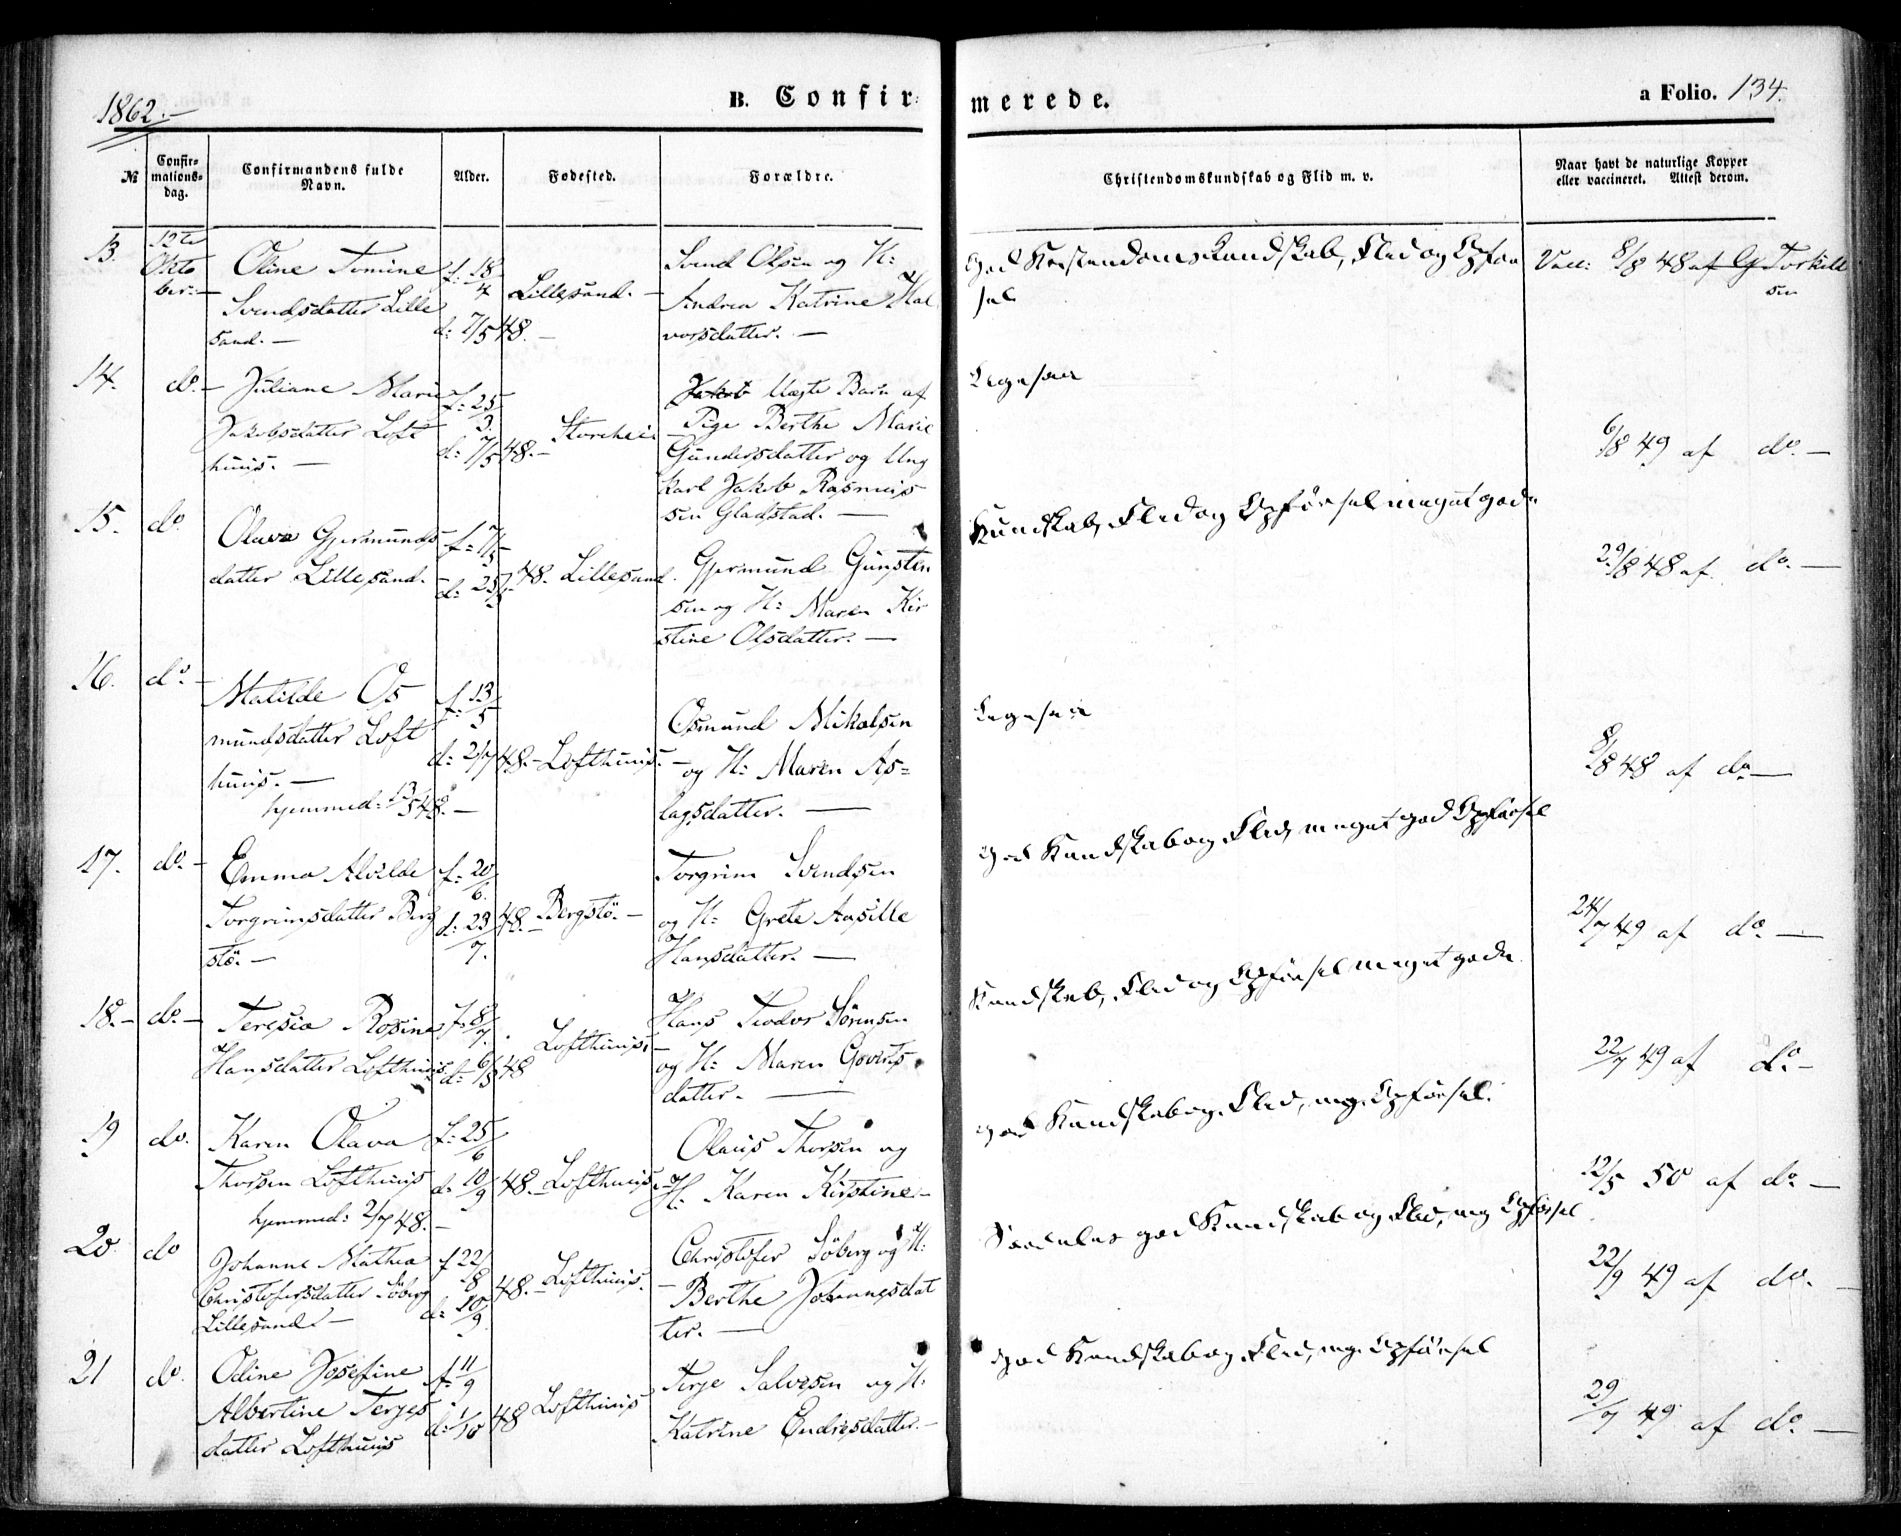 1862.
B. Confir=
merede.
a Folio. 134.
№
Confir=
mations=
dag.
Confirmandens fulde
Navn.
Alder.
Fødested.
Forældre.
Christendomskundskab og Flid m. v.
Naar havt de naturlige Kopper
eller vaccineret. Attest derom.
13.
12te
Okto
ber.
Oline Tomine
Svendsdatter Lille
sand. —
f: 18/4
d: 7/5 48. —
Lillesand. —
Svend Olsen og H:
Andrea Katrine Hal
vorsdatter. —
god Kristendomskundskab, Flid og Opfør
sel
Vacc: 8/8 48 af G Torkild
sen
14.
do. —
Juliane Marie
Jakobsdatter Loft
huus. —
f: 25/3.
d: 7/5 48. —
Jakob Uægte Barn af
Pige Berthe Marie
Gundersdatter og Ung
karl Jakob Rasmus
sen Gladstad. —
Ligesaa
6/8 49 af do. —
15.
do.
Olava Gjermunds
datter Lillesand. —
f: 7/5
d: 25/5 48.
Lillesand.
Gjermund Gunsten
sen og H: Maren Kir
stine Olsdatter. —
Kundskab, Flid og Opførsel meget gode
29/8 48 af do. —
16.
do. —
Matilde Os
mundsdatter Loft
huus. —
hjemmed: 13/5 48. —
f: 13/5
d: 2/7 48. —
Lofthuus. —
Osmund Mikalsen
og H: Maren As=
lagsdatter. —
Ligesaa
8/8 48 af do —
17.
do. —
Emma Alvilde
Torgrimsdatter Berg
stö. —
f: 20/6.
d: 23/7. 48. —
Bergstö. —
Torgrim Svendsen
og H: Grete Aasille
Hansdatter. —
god Kundskab og Flid, meget god Opførsel
24/7 49 af do. —
18. —
do. —
Teresia Rosine
Hansdatter Lofthuus
f. 8/7.
d: 6/8 48
Lofthuus.
Hans Teodor Sörensen
og H: Maren Goverts
datter. —
Kundskab, Flid og Opførsel meget gode
22/7 49 af do —
19
do.
Karen Olava
Thorsen Lofthuus
hjemmed: 2/7 48. —
f: 25/6
d: 10/9 48. —
Lofthuus —
Olaus Thorsen og
H: Karen Kirstine —
god Kundskab og Flid, meg. Opførsel.
12/5 50 af do. —
20.
do
Johanne Mathea
Christofersdatter Söberg
Lillesand. —
f 22/8
d: 10/9. 48. —
Lofthuus.
Christofer Söberg og H:
Berthe Johannesdat
ter. —
Særdeles god Kundskab og Flid, meg Opførsel
22/9 49 af do. —
21
do.
Odine Josefine
Albertine Terjes
datter Lofthuus
f: 11/9
d: 1/10 48
Lofthuus
Terje Salvesen og H:
Katrine Endresdatter. —
god Kundskab og Flid, meg. Opførsel
29/7 49 af do. —